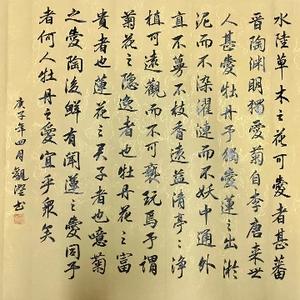 水陸草木之花可愛者甚蕃
晉陶渊明獨愛菊自李唐来世
人甚愛牡丹予獨愛蓮之出淤
泥而不染濯漣而不妖中通外
直不蔓不枝香遠益清亭亭淨
植可遠觀而不可褻玩焉予謂
菊花之隐逸者也牡丹花之富
貴者也蓮花之君子者也噫菊
之愛陶後鮮有聞蓮之愛同予
者何人牡丹之愛宜乎衆矣
庚子年四月觀澄书